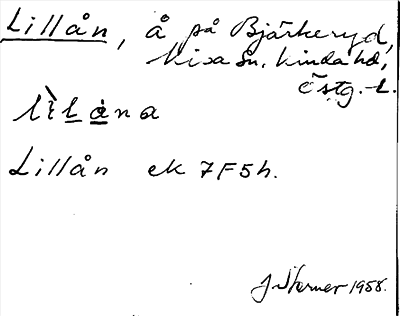 Lillån, å på Bjärkeryd,
Kisa sn, Kinda hd,
Östg. l.
lìlåna
Lillån ek 7F5h.
1958.